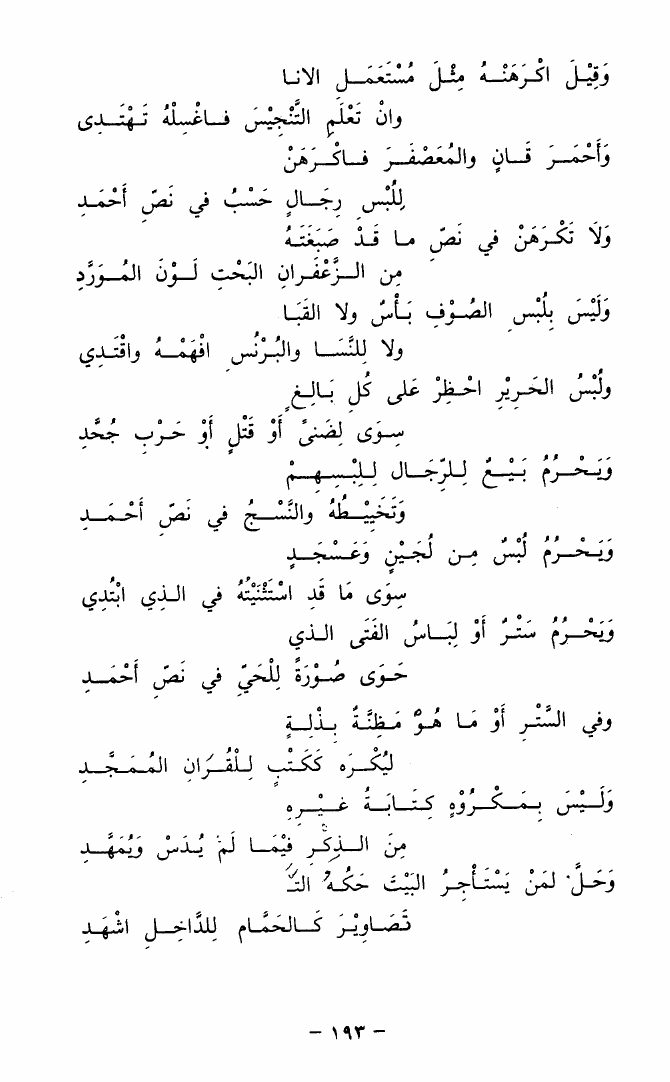 وَقِيْلَ اكْرَهَنْهُ مِثْلَ مُسْتَعْمَلِ الانا
وانْ تَعْلَمِ التَّنْجِيْسَ فاغْسِلْهُ تَهْتَدِى
وَأَحْمَرَ قَانٍ والمُعَصْفَرَ فاكْرَهَنْ
لِلُبْسِ رِجَالٍ حَسْبُ في نَصِّ أَحْمَدِ
وَلَا تَكْرَهَنْ في نَصِّ ما قَدْ صَبَغْتَهُ
مِن الزَّعْفَرانِ البَحْتِ لَوْنَ المُوَرَّدِ
وَلَيْسَ بِلُبْسِ الصُوْفِ بَأْسٌ ولا القَبَا
ولا لِلنِّسَا والبُرْنُسِ افْهَمْهُ واقْتَدِي
ولُبْسُ الحَرِيْرِ احْظِرْ عَلى كُلِ بَالِغٍ
سِوَى لِضَنىً أَوْ قَتْلٍ أَوْ حَرْبِ جُحَّدِ
وَيَحْرُمُ بَيْعٌ لِلرِّجَالِ لِلبْسِهِمْ
وَتَخْيِيْطُهُ والنَّسْجُ في نَصِّ أَحْمَدِ
وَيَحْرُمُ لُبْسٌ مِن لُجَيْنٍ وَعَسْجَدٍ
سِوَى مَا قَدِ اسْتَثْنَيْتُهُ في الذِي ابْتُدِي
وَيَحْرُمُ سَتْرٌ أَوْ لِبَاسُ الفَتَى الذي
حَوَى صُوْرَةً لِلْحَيِّ في نَصِّ أَحْمَدِ
وفي السِّتْرِ أَوْ مَا هُوْ مَظِنَّةُ بِذْلِةٍ
لِيُكْرَه كَكَتْبٍ لِلْقُرَانِ المُمَجَّدِ
وَلَيْسَ بِمَكْرُوْهٍ كِتَابَةُ غَيْرِهِ
مِنَ الذِكْرِ فِيْمَا لَمْ يُدَسْ وَيُمَهَّدِ
وَحَلَّ لمَنْ يَسْتَأْجِرُ البَيْتَ حَكُّهُ التْـ
تَصَاوِيْرَ كَالحَمَّامِ لِلدَّاخِلِ اشْهَدِ
- ١٩٣ -